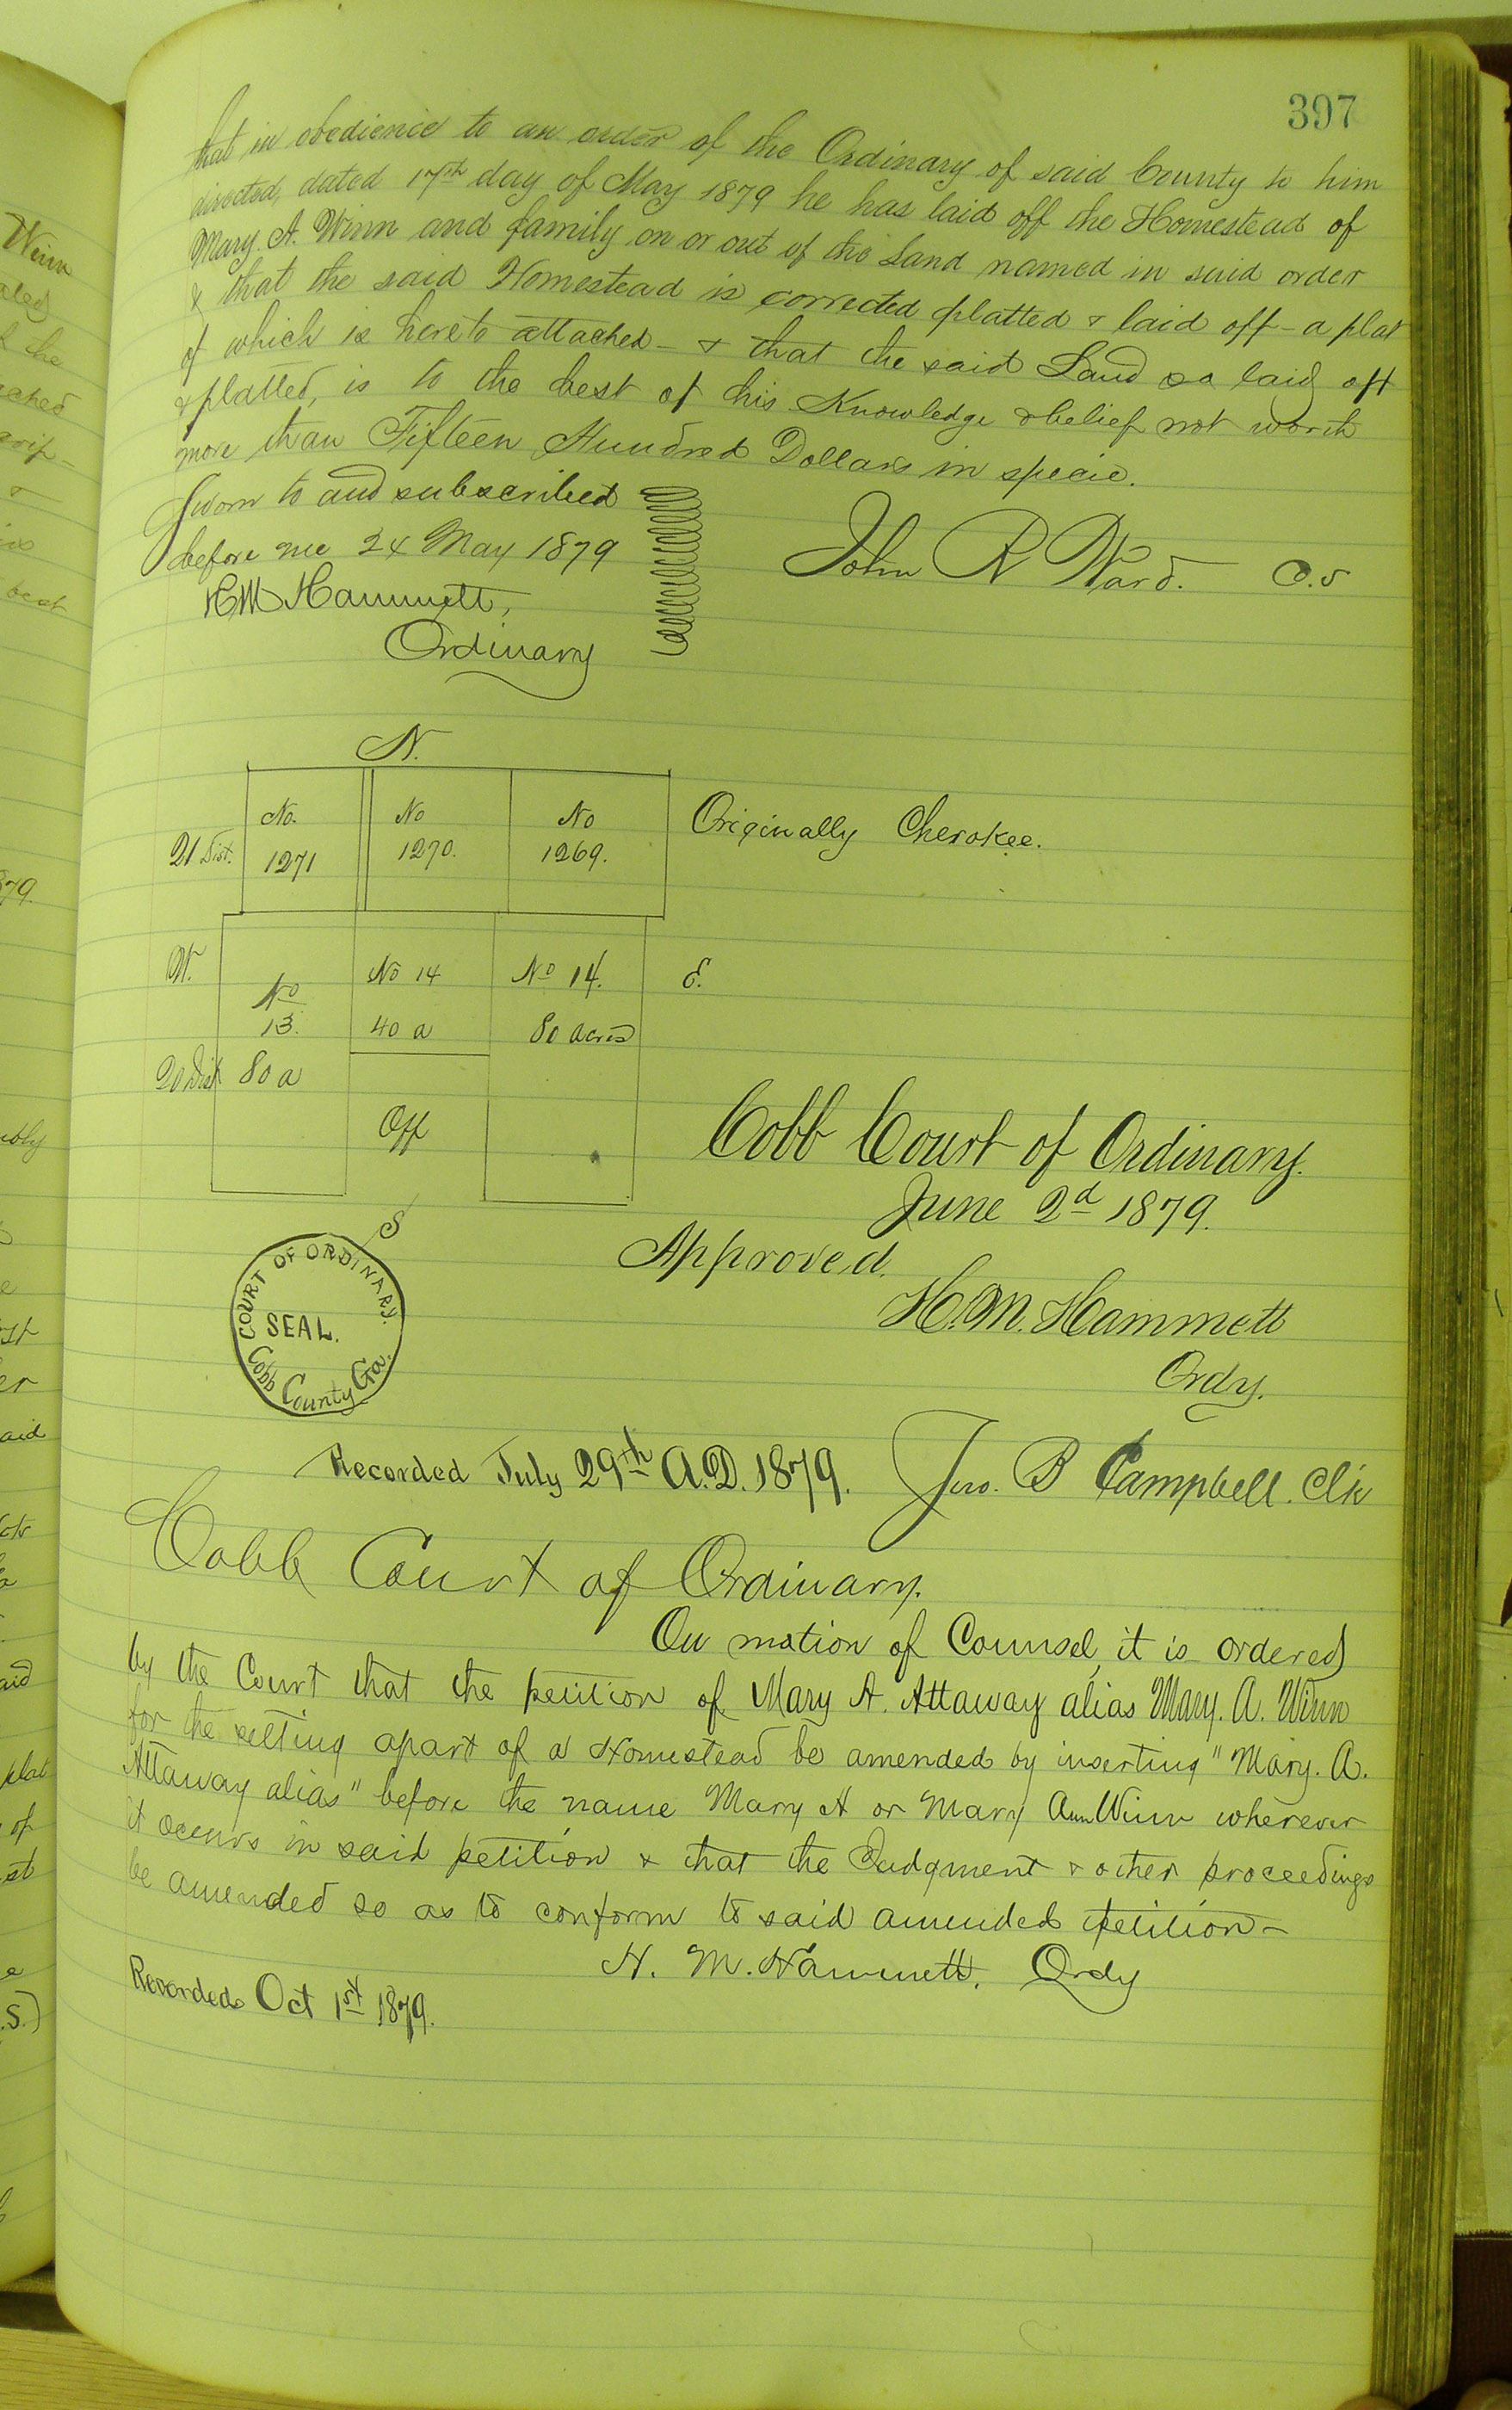 397
that in obedience to an order of the Ordinary of said County to him
directed, dated 17th day of May 1879 he has laid off the Homestead of
Mary. A. Winn and family on or out of the Land named in said order
& that the said Homestead is corrected platted & laid off - a plat
of which is hereto attached - & that the said Land so laid off
& platted, is to the best of his Knowledge & belief not worth
more than Fifteen Hundred Dollars in specie.
Sworn to and subscribed
before me 24 May 1879
John R Ward. C.S
H M Hammett,
Ordinary
N.
No. No No
21 Dist. 1271 1270. 1269.
Originally Cherokee.
W. No 14 No 14. E.
No
13. 40 a 80 acres
20 Dist 80 a
Off
Cobb Court of Ordinary.
June 2d 1879.
S
Approved.
COURT OF ORDINARY.
SEAL.
Cobb County Ga.
H. M. Hammett
Ordy.
Recorded July 29th A.D. 1879. Jno. B Campbell. Clk
Cobb Court of Ordinary.
On motion of Counsel, it is ordered
by the Court that the petition of Mary A. Attaway alias Mary. A. Winn
for the setting apart of a Homestead be amended by inserting "Mary. A.
Attaway alias" before the name Mary A or Mary Ann Winn wherever
it occurs in said petition & that the Judgment & other proceedings
be amended so as to conform to said amended petition -
H. M. Hammett, Ordy
Recorded Oct 1st 1879.